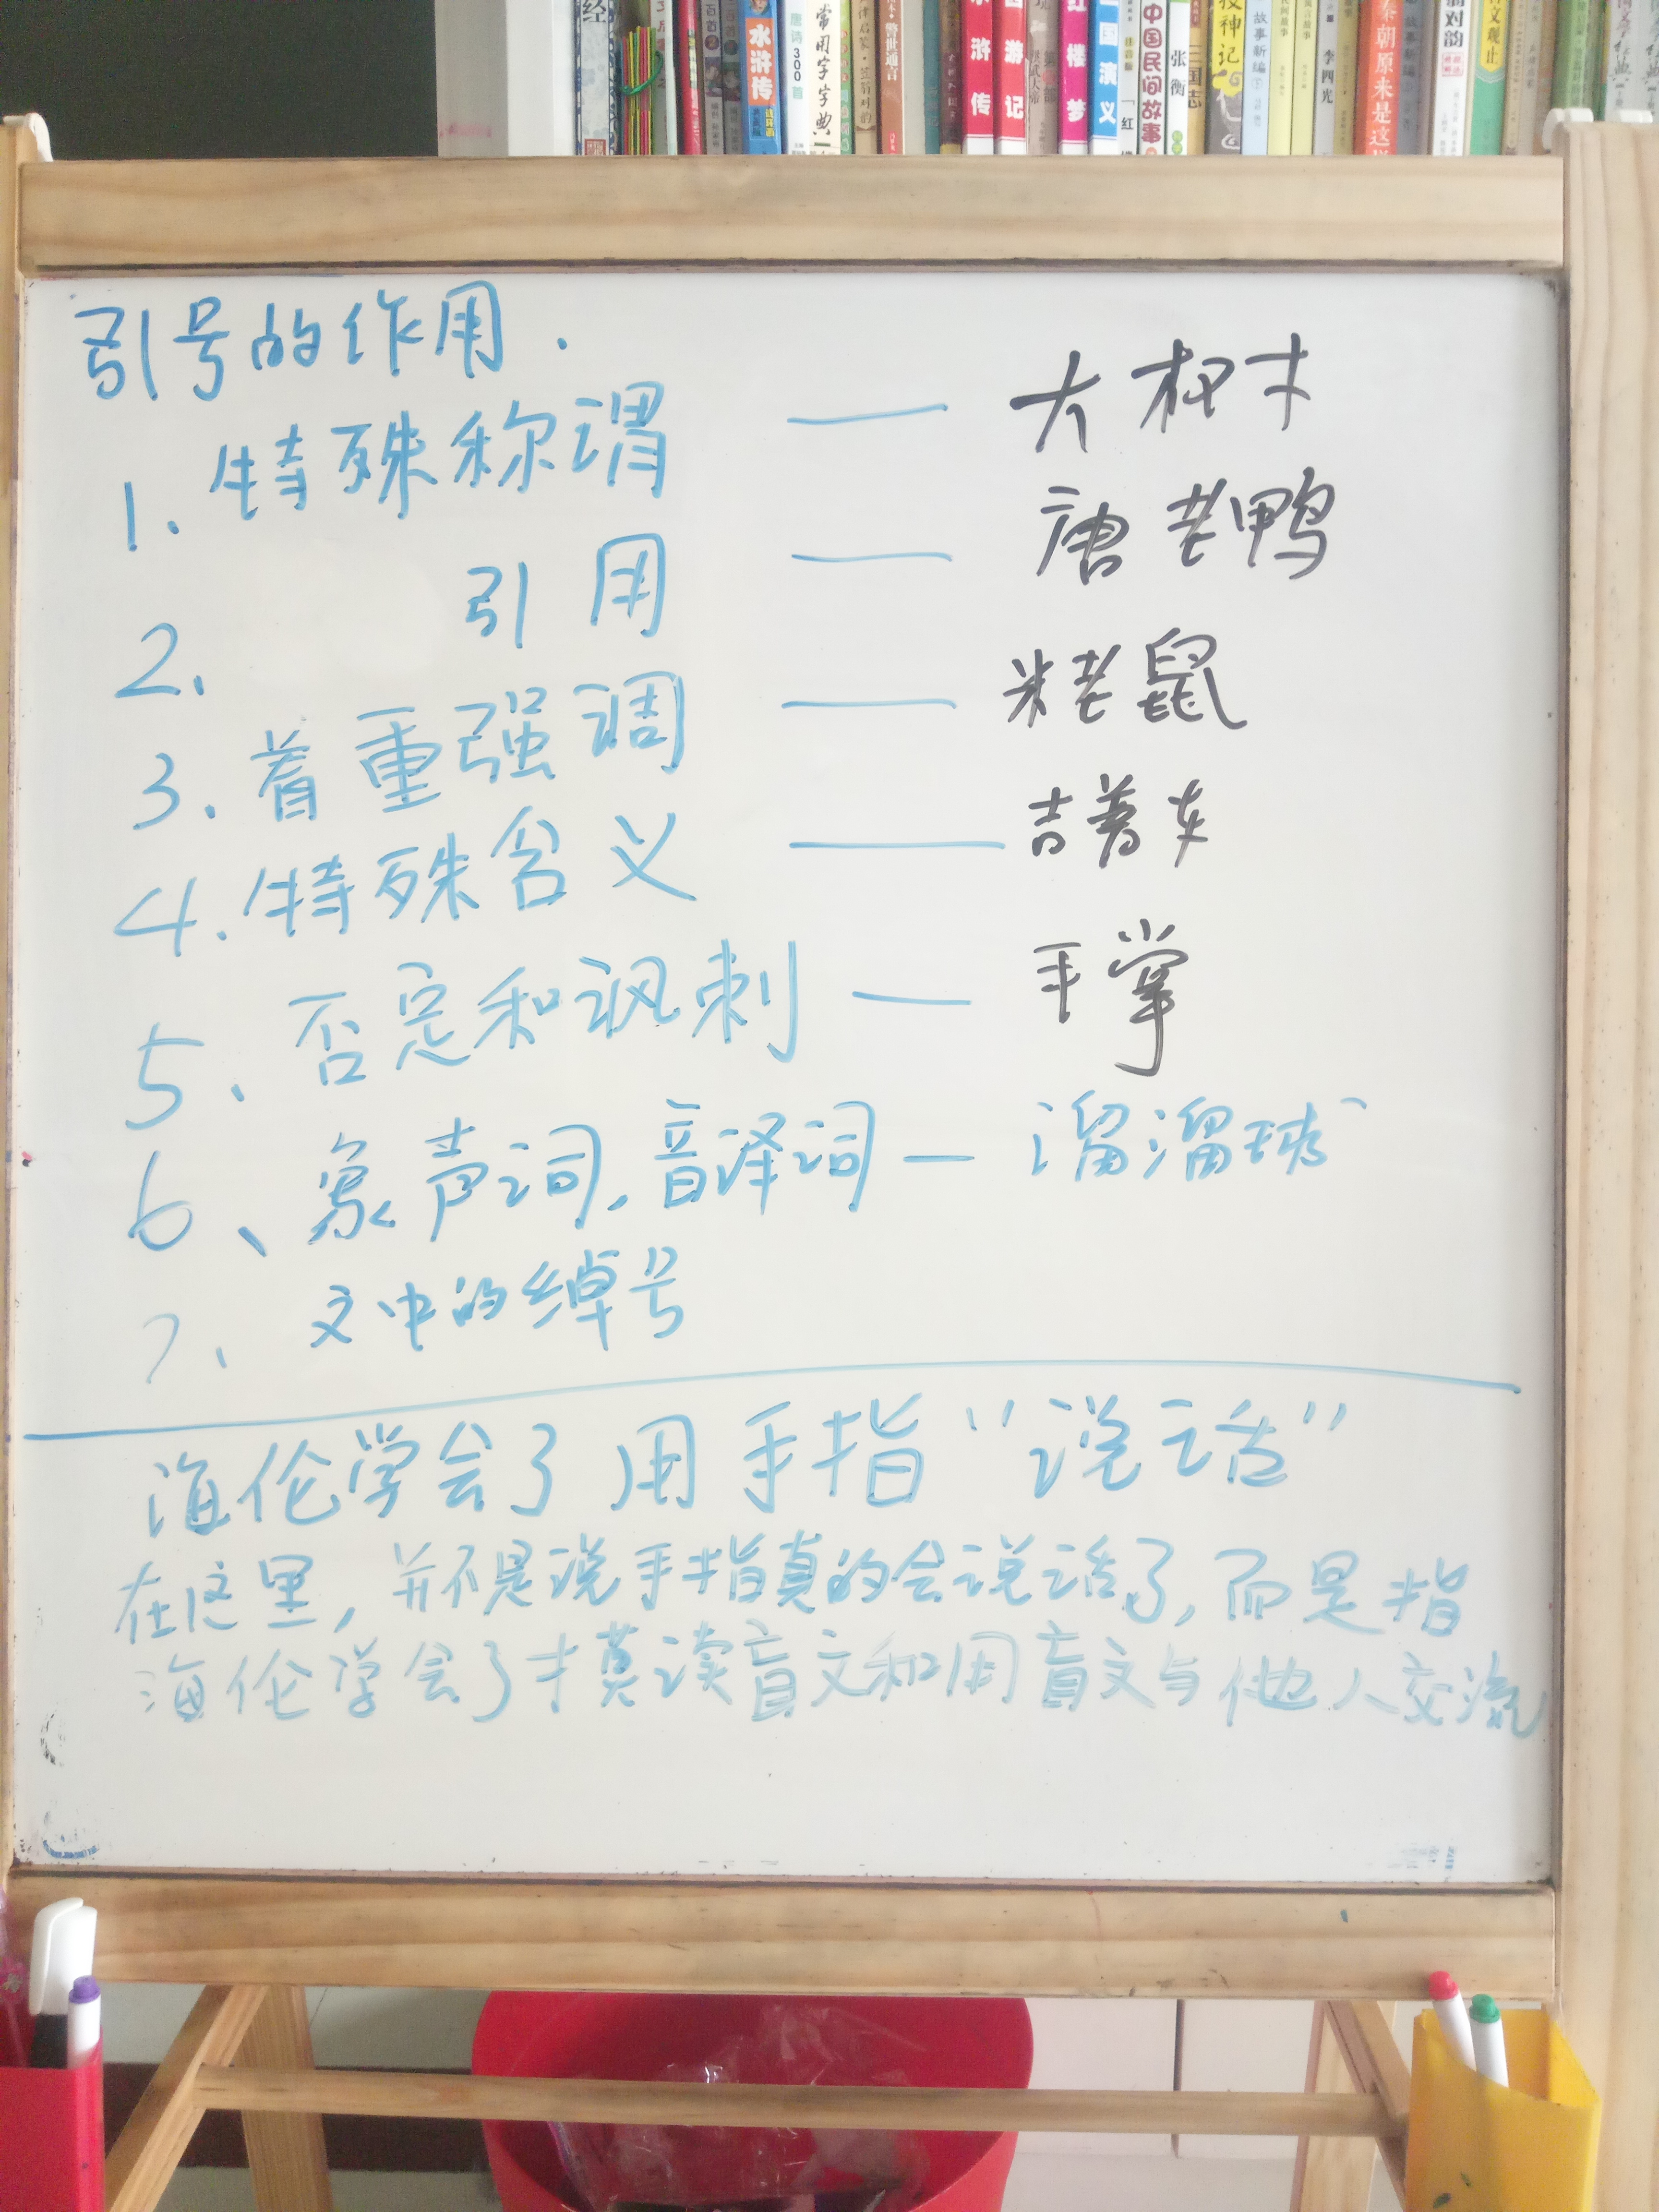 水浒传
唐诗300首
常用字字典
警世通言
水浒传
游记
红楼梦
国演义
中国民间故事
张衡
三国志
搜神记
故事新编
李四光
秦朝原来是这样
对韵
文观止
引号的作用.
1. 特殊称谓 —— 大树木
2. 引用 —— 唐老鸭
3. 着重强调 —— 米老鼠
4. 特殊含义 ——
5、否定和讽刺 — 手掌
6、象声词,音译词 — 溜溜球
7、文中的绰号
海伦学会了用手指“说话”
在这里,并不是说手指真的会说话了,而是指
海伦学会了摸读盲文和用盲文与他人交流